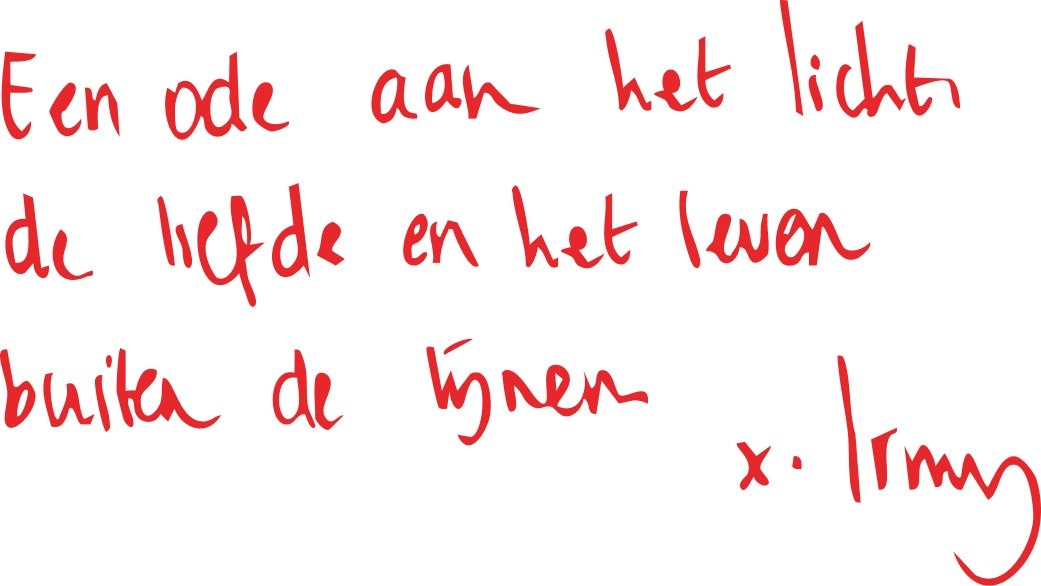 Een ode aan het licht,
de liefde en het leven
buiten de lijnen
x. Irmy